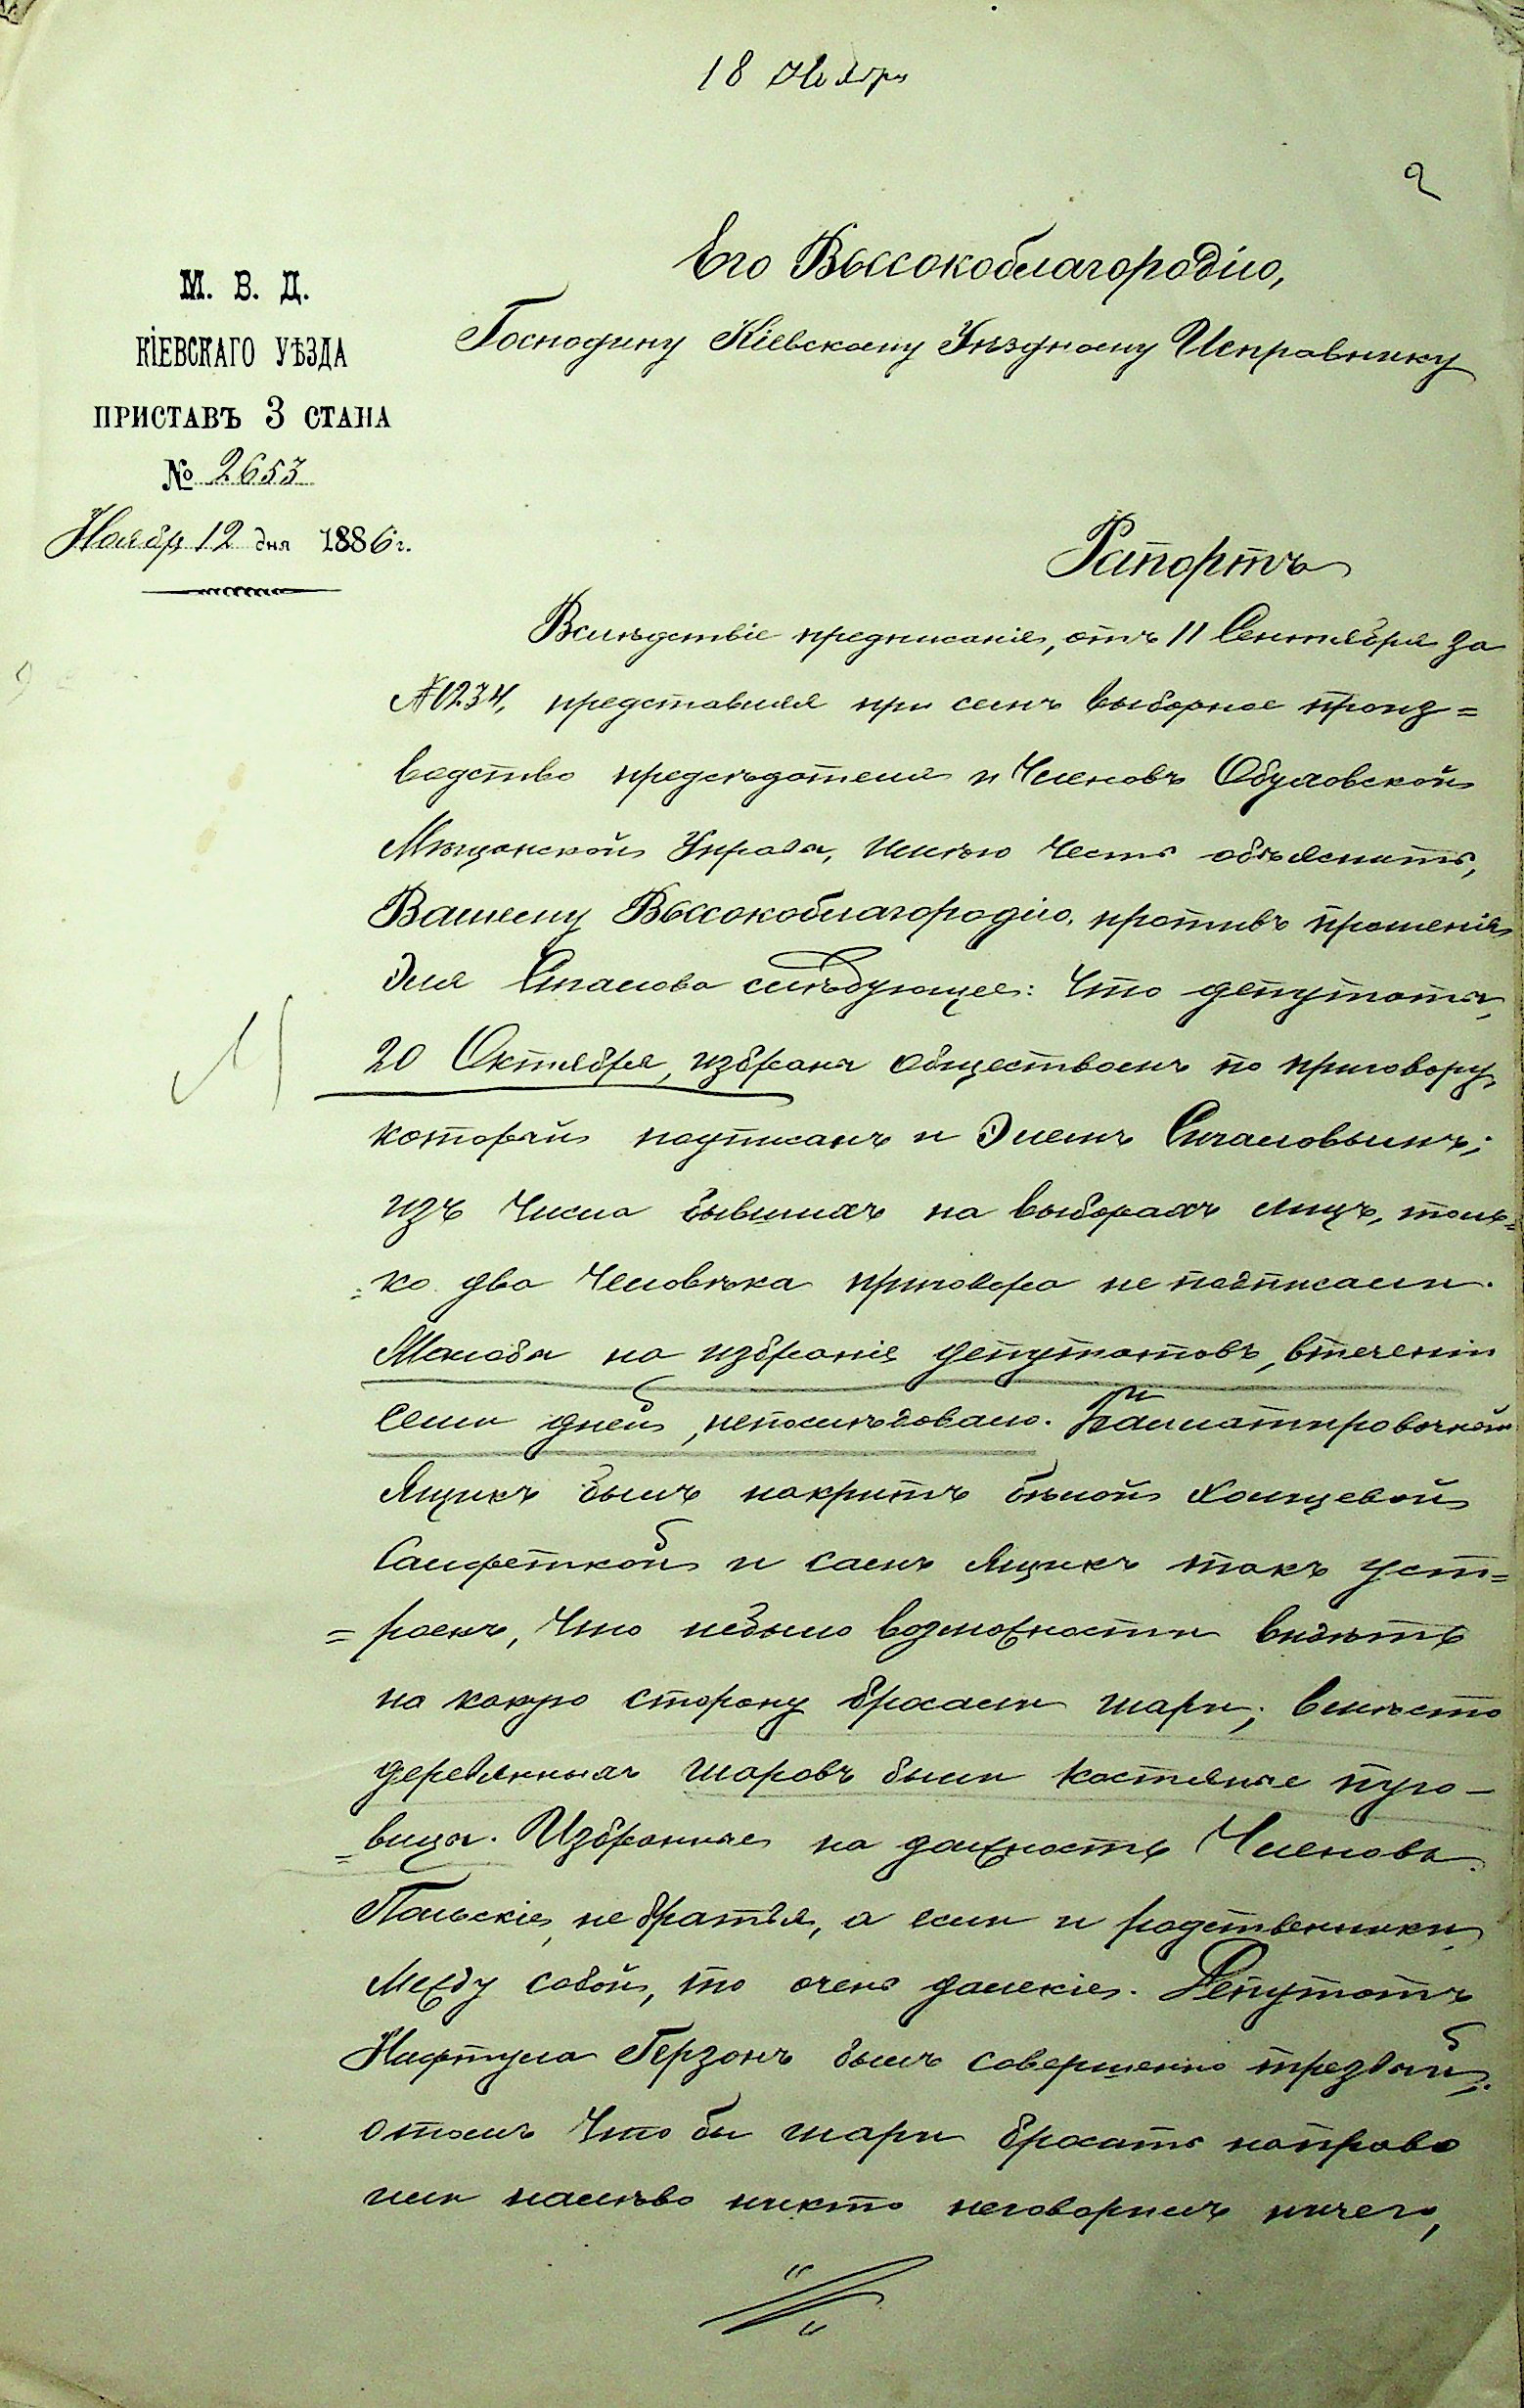 18 Ноября
2
М. В. Д.
КІЕВСКАГО УѢЗДА
ПРИСТАВЪ 3 СТАНА
№ 2653
Ноябр 12 дня 1886 г.
Его Высокоблагородію,
Господину Кіевскому Уѣздному Исправнику
Рапортъ
Вслѣдствіе предписанія, отъ 11 Сентября за
№ 1234, представляя при семъ выборное произ=
водство предсѣдателя и Членовъ Обуховской
Мѣщанской Управы, имѣю честь объяснить,
Вашему Высокоблагородію, противъ прошенія
Эля слѣдующее: Что депутаты,
20 Октября, избраны обществомъ по приговору,
который подписанъ и Элемъ
изъ числа бывшихъ на выборахъ лицъ, толь=
=ко два человѣка приговора не подписали.
Жалобы на избраніе депутатовъ, втеченіи
семи дней, непослѣдовало. Баллатировочный
Ящикъ былъ накрытъ бѣлой холщевой
Салфеткой и самъ Ящикъ такъ уст=
=роенъ, Что небыло возможности видѣть
на какую сторону бросали шары; вмѣсто
деревянныхъ шаровъ были костяные пуго-
=вицы. Избранные на должность Членовъ
Польскіе, не братья, а если и родственники
между собой, то очень далекіе. Депутатъ
Нафтула Герзонъ былъ совершенно трезвый;
отомъ Что бы шары бросать направо
или налѣво никто неговорилъ ничего,